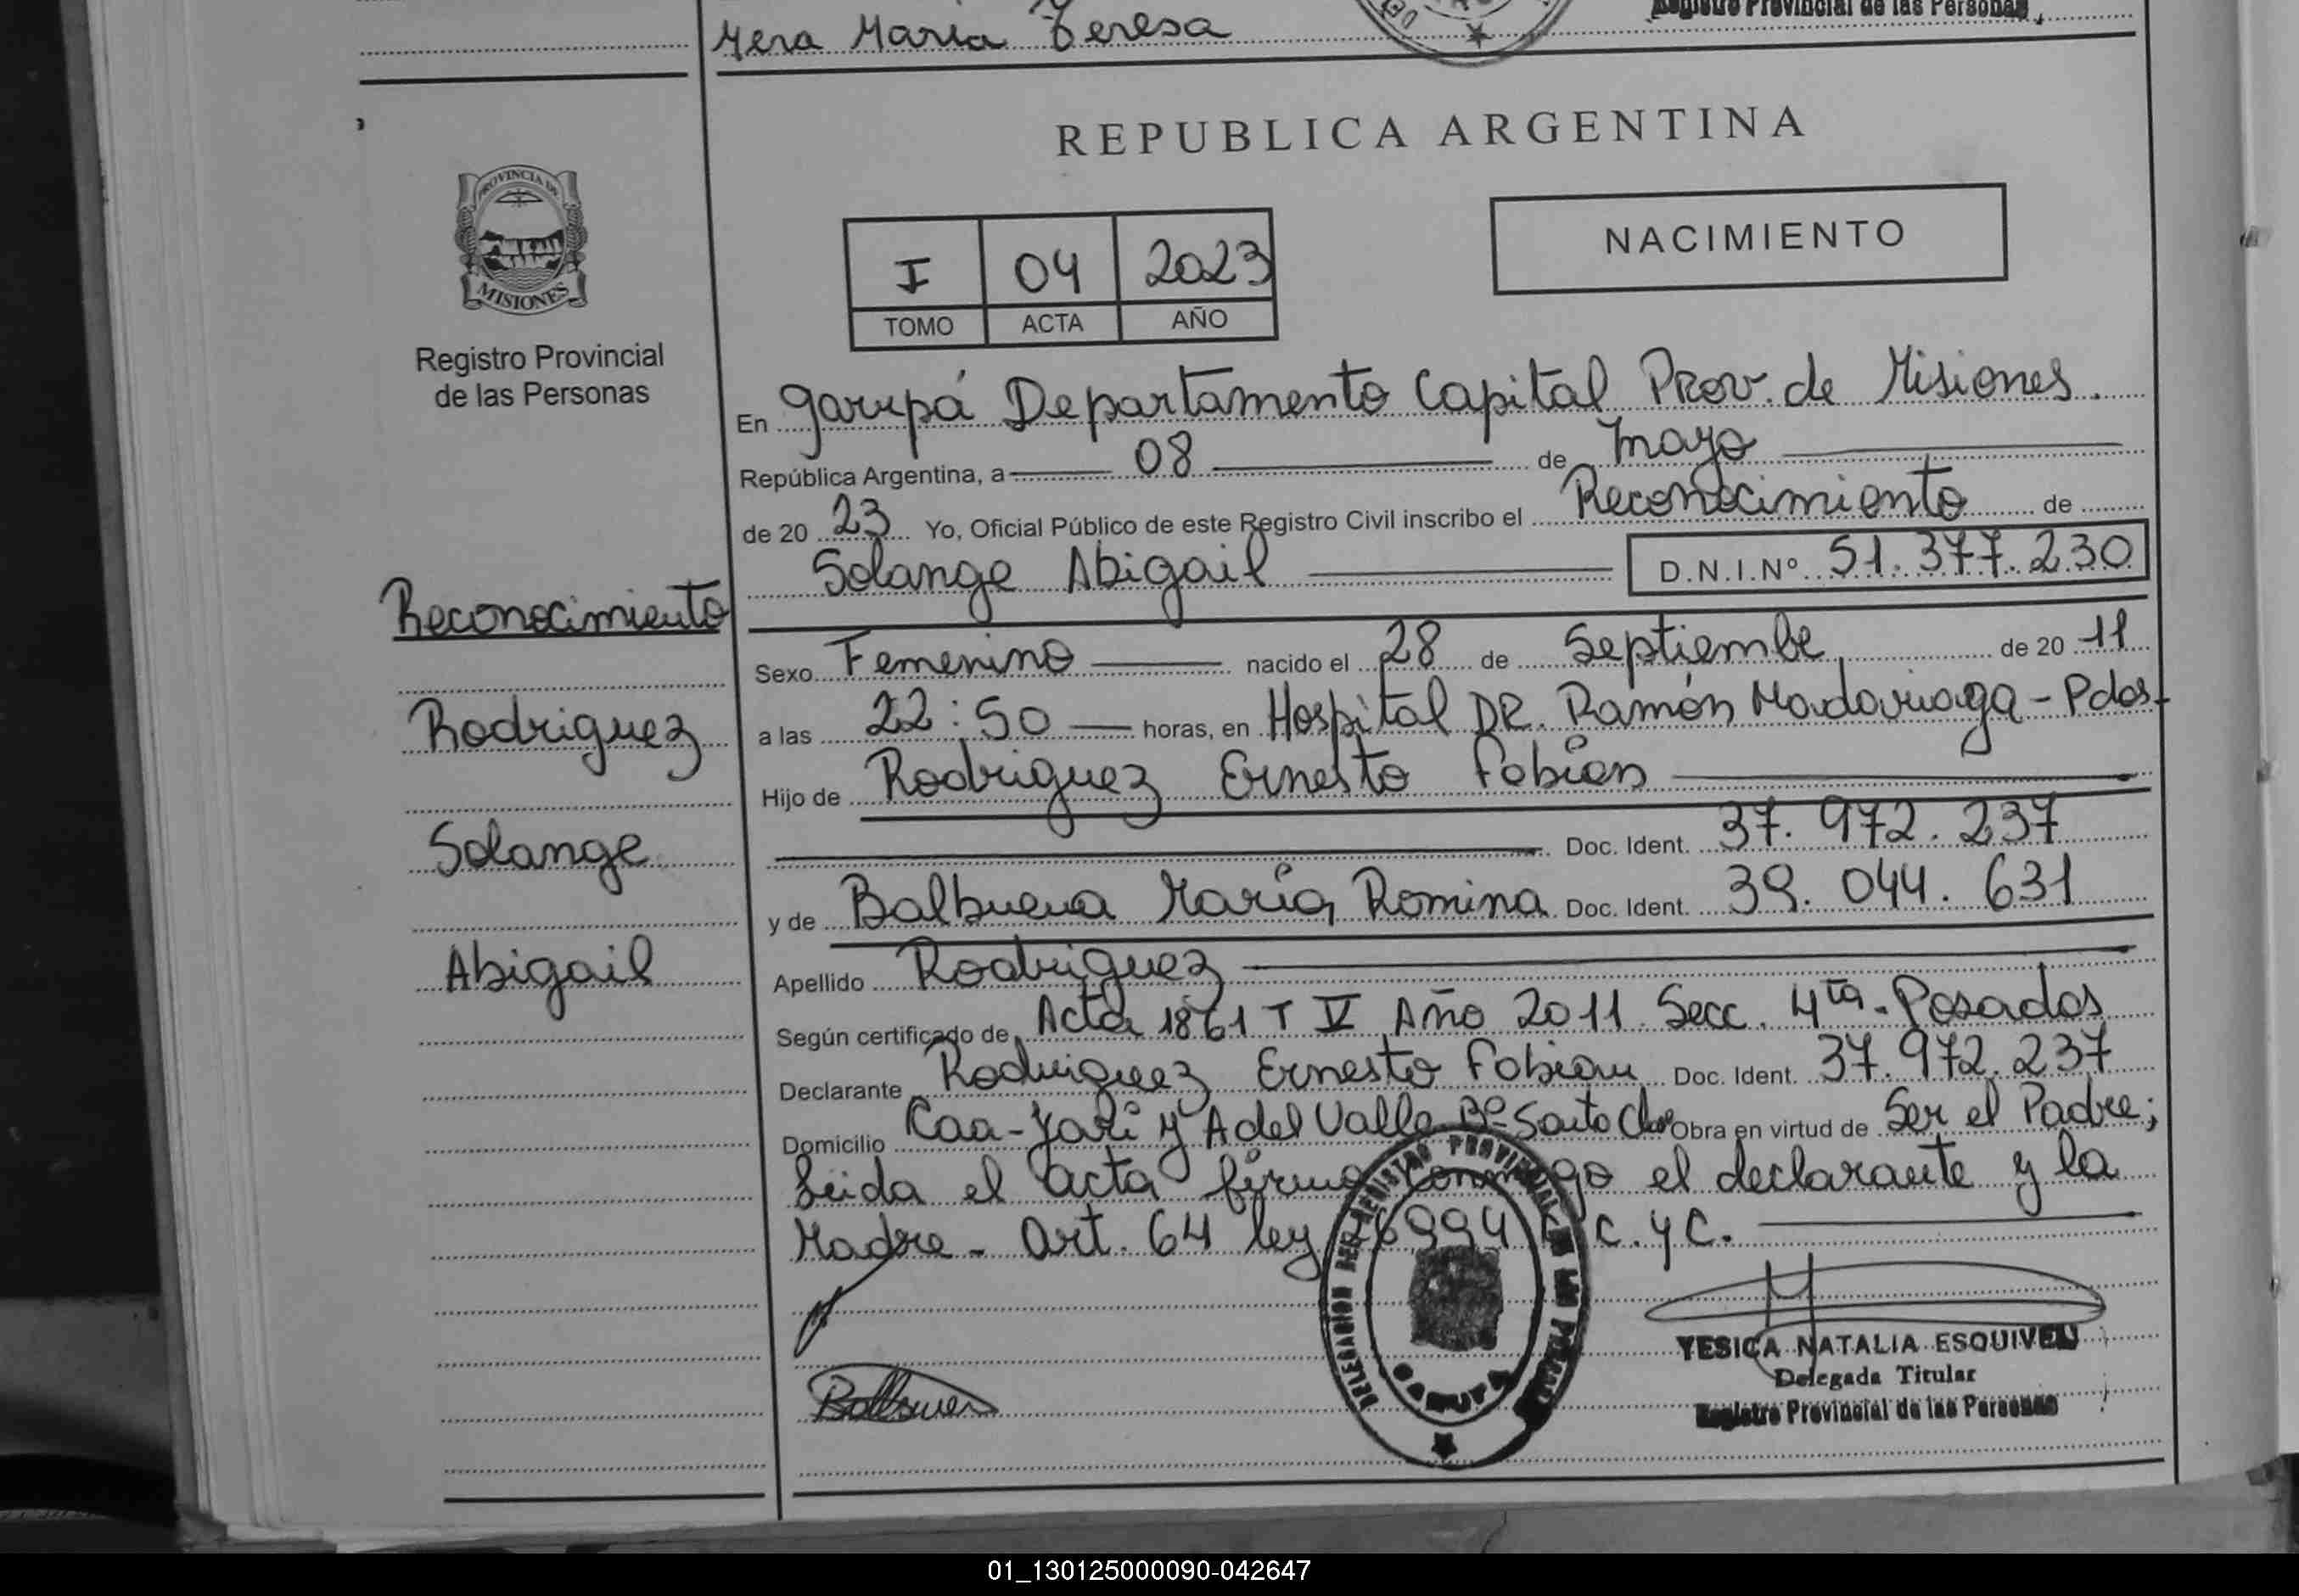 Mera Maria Teresa
Registro Provincial de las Personas
REPUBLICA ARGENTINA
PROVINCIA DE
MISIONES
Registro Provincial
de las Personas
I 04 2023
TOMO ACTA AÑO
NACIMIENTO
En Garupá Departamento Capital Prov. de Misiones.
República Argentina, a 08 de mayo
de 20 23 Yo, Oficial Público de este Registro Civil inscribo el Reconocimiento de
Solange Abigail D.N.I.Nº 51.377.230
Reconocimiento
Rodriguez
Solange
Abigail
Sexo Femenino nacido el 28 de Septiembe de 20 11
a las 22:50 horas, en Hospital DR. Ramón Madariaga - Pdas.
Hijo de Rodriguez Ernesto Fabián
Doc. Ident. 37.972.237
y de Balbuena María Romina Doc. Ident. 39.044.631
Apellido Rodriguez
Según certificado de Acta 1861 T V Año 2011 Secc. 4ta - Posadas
Declarante Rodriguez Ernesto Fabian Doc. Ident. 37.972.237
Domicilio Caa-Yarí y A del Valle Bº Santa Obra en virtud de Ser el Padre;
Leida el acta firma conmigo el declarante y la
Madre - Art. 64 ley 26994 C.y C.
DELEGACION DEL REGISTRO PROVINCIAL DE LAS PERSONAS
Balbuena
YESICA NATALIA ESQUIVEL
Delegada Titular
Registro Provincial de las Personas
01_130125000090-042647